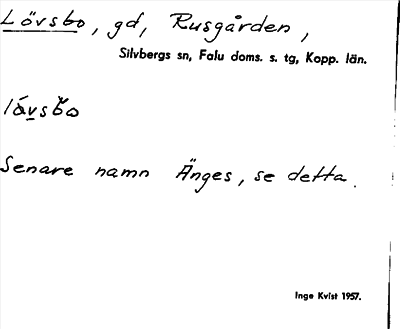 Lövsbo, gd, Rusgården,
Silvbergs sn, Falu doms. s. tg, Kopp. län.
Senare namn Änges, se detta.
Inge Kvist 1957.